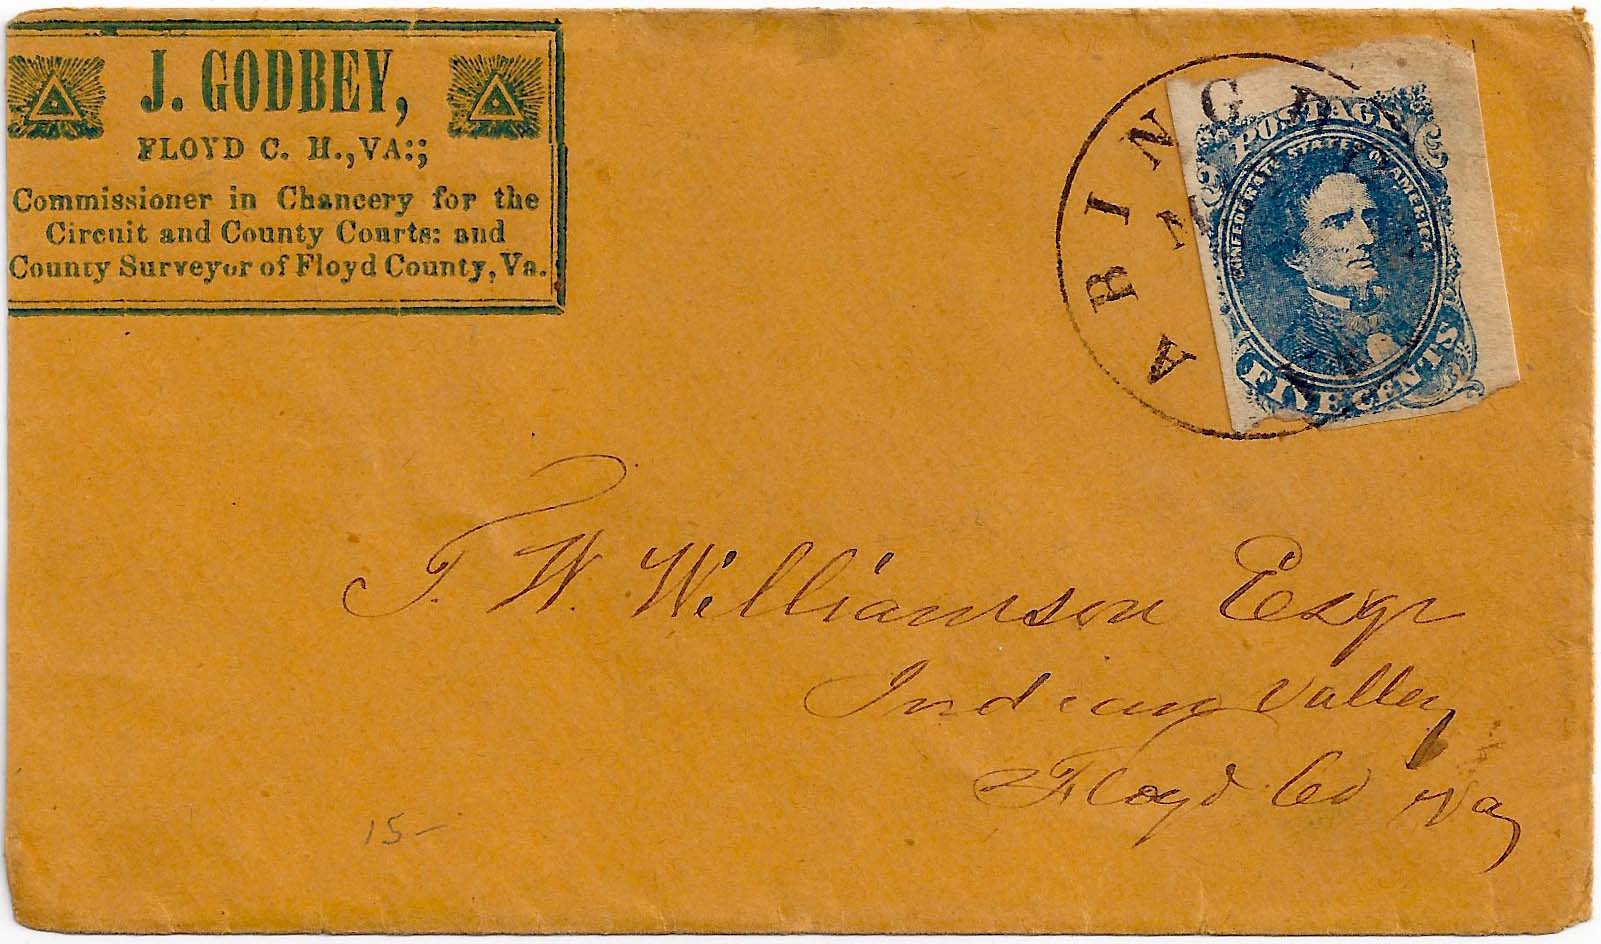 J. GODBEY,
FLOYD C. H., VA:;
Commissioner in Chancery for the
Circuit and County Courts: and
County Surveyor of Floyd County, Va.
ABING
POSTAGE
CONFEDERATE STATES OF AMERICA
FIVE CENTS
T. W. Williamson Esqr
Indian Valley
Floyd Co Va
15-